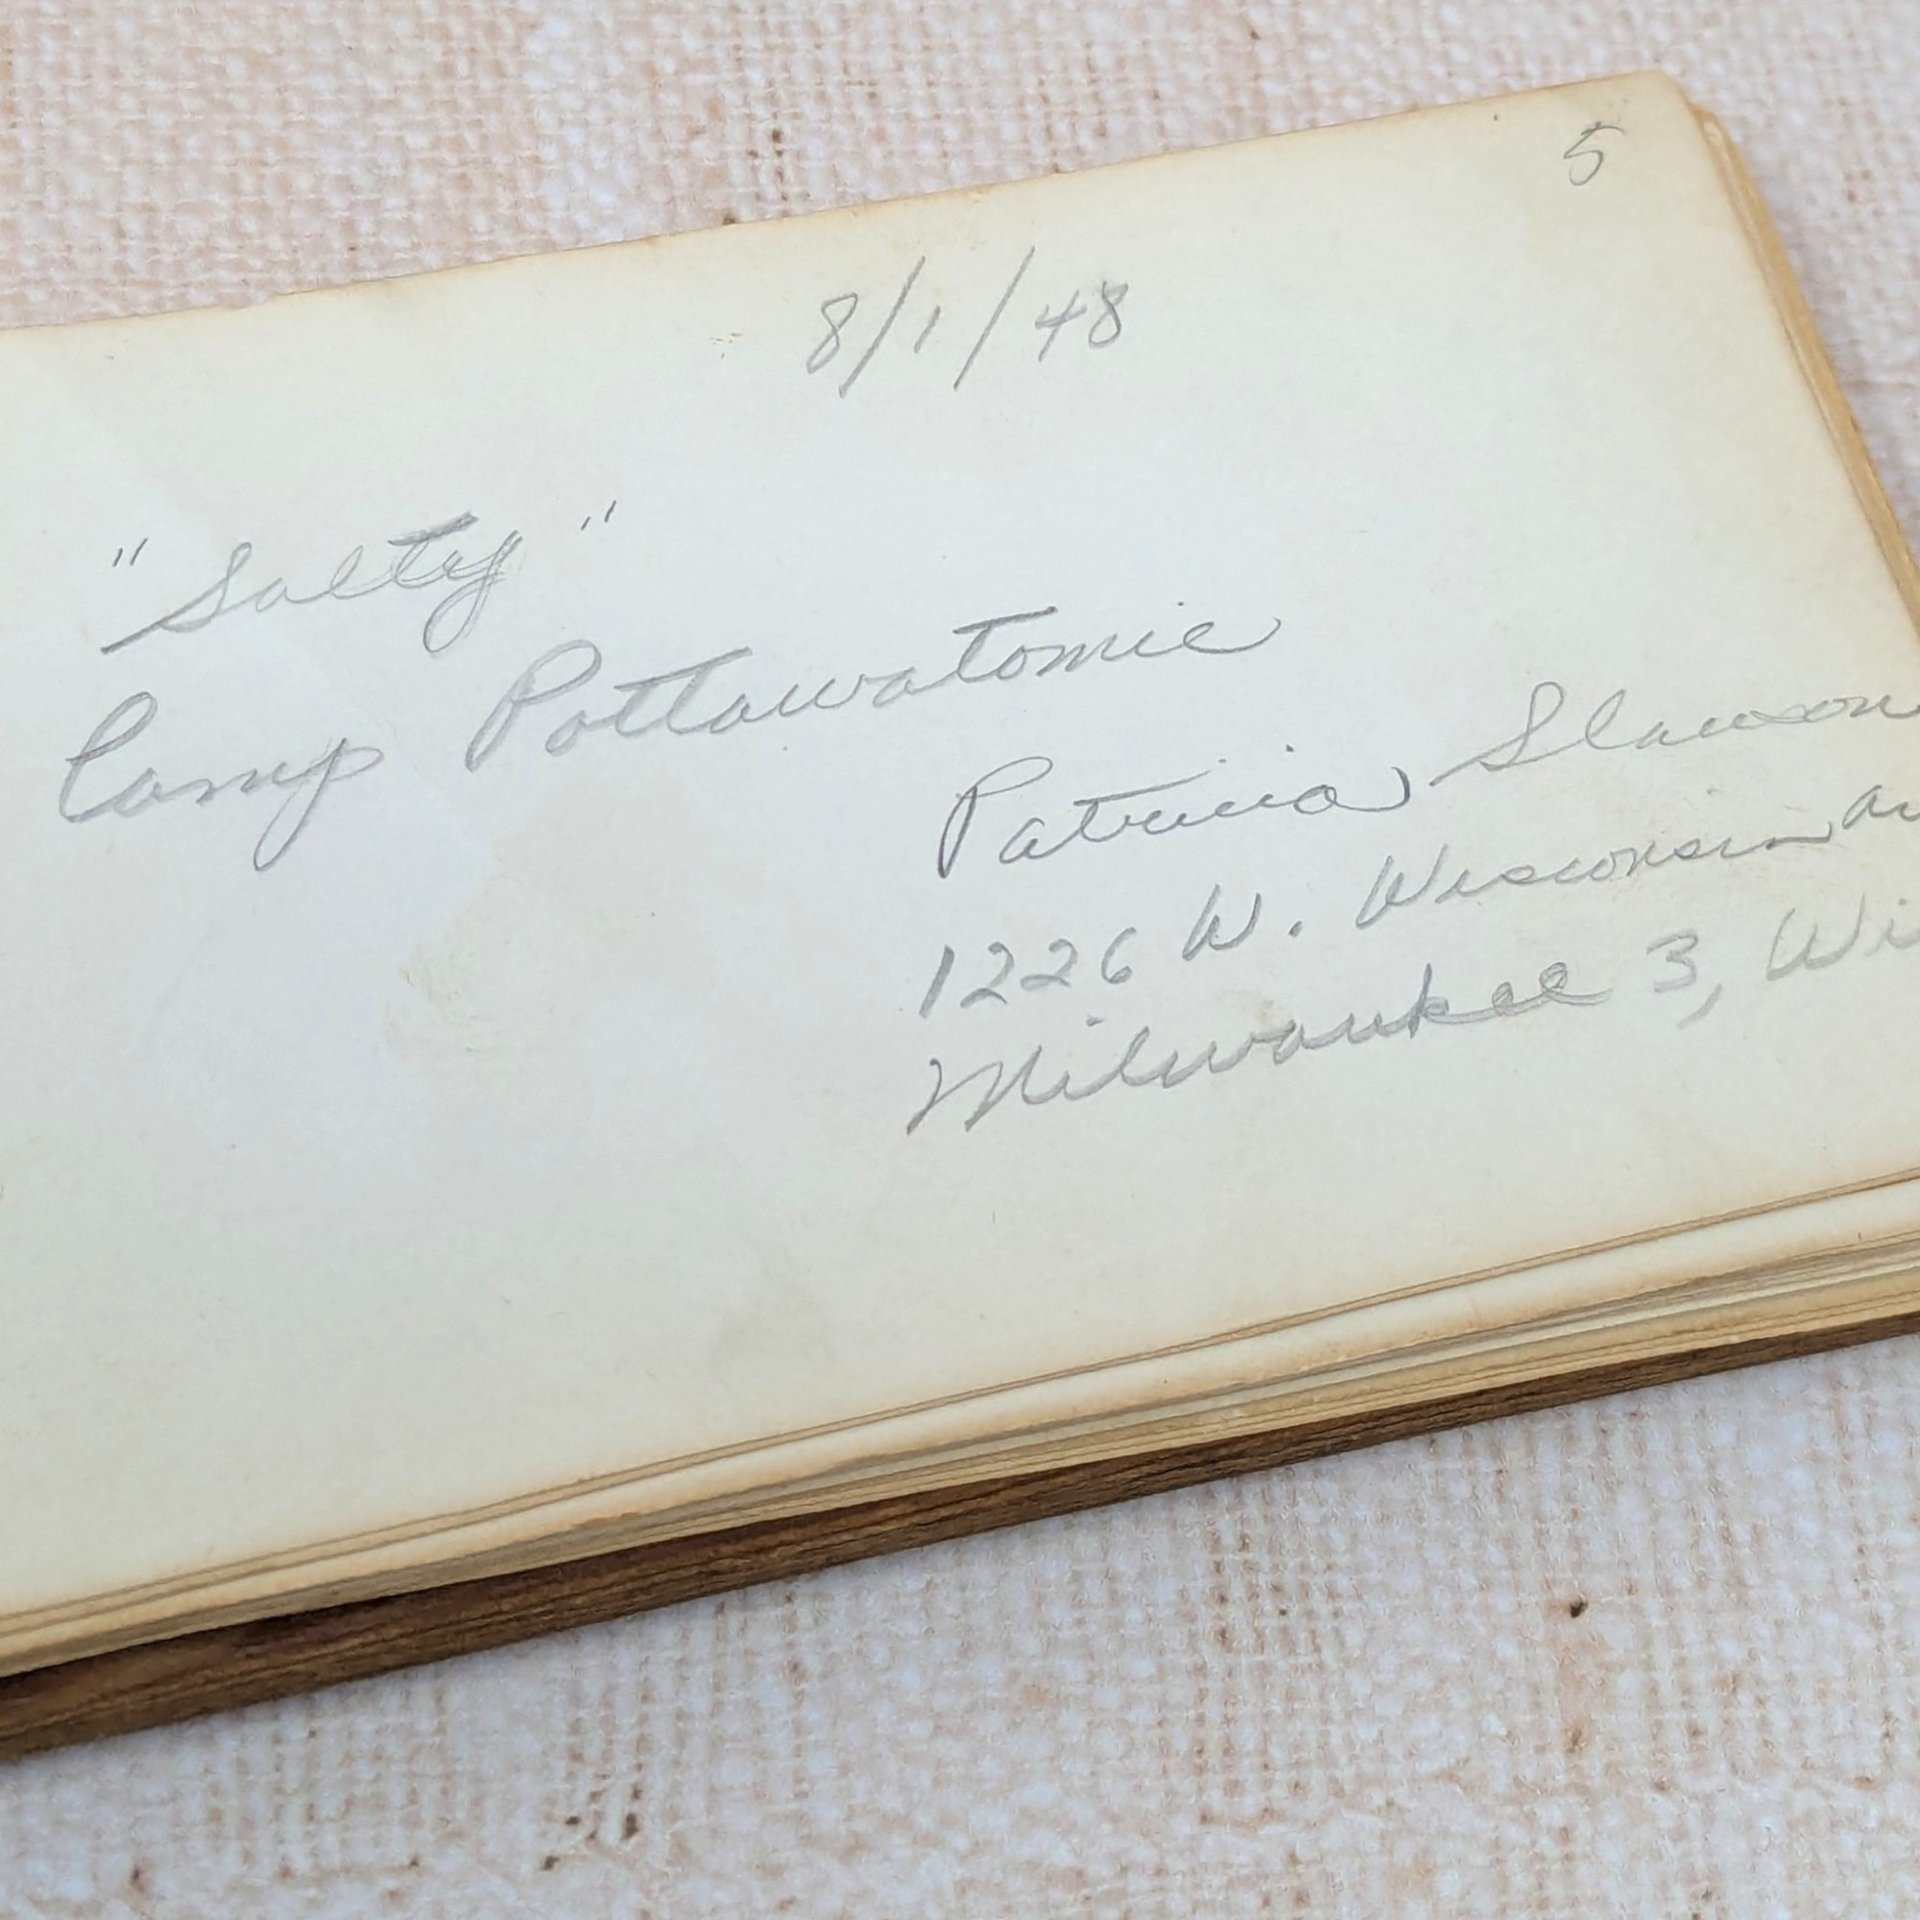 5
8/1/48
"Salty"
Camp Pottawatomie
Patricia Slawson
1226 W. Wisconsin
Milwaukee 3,